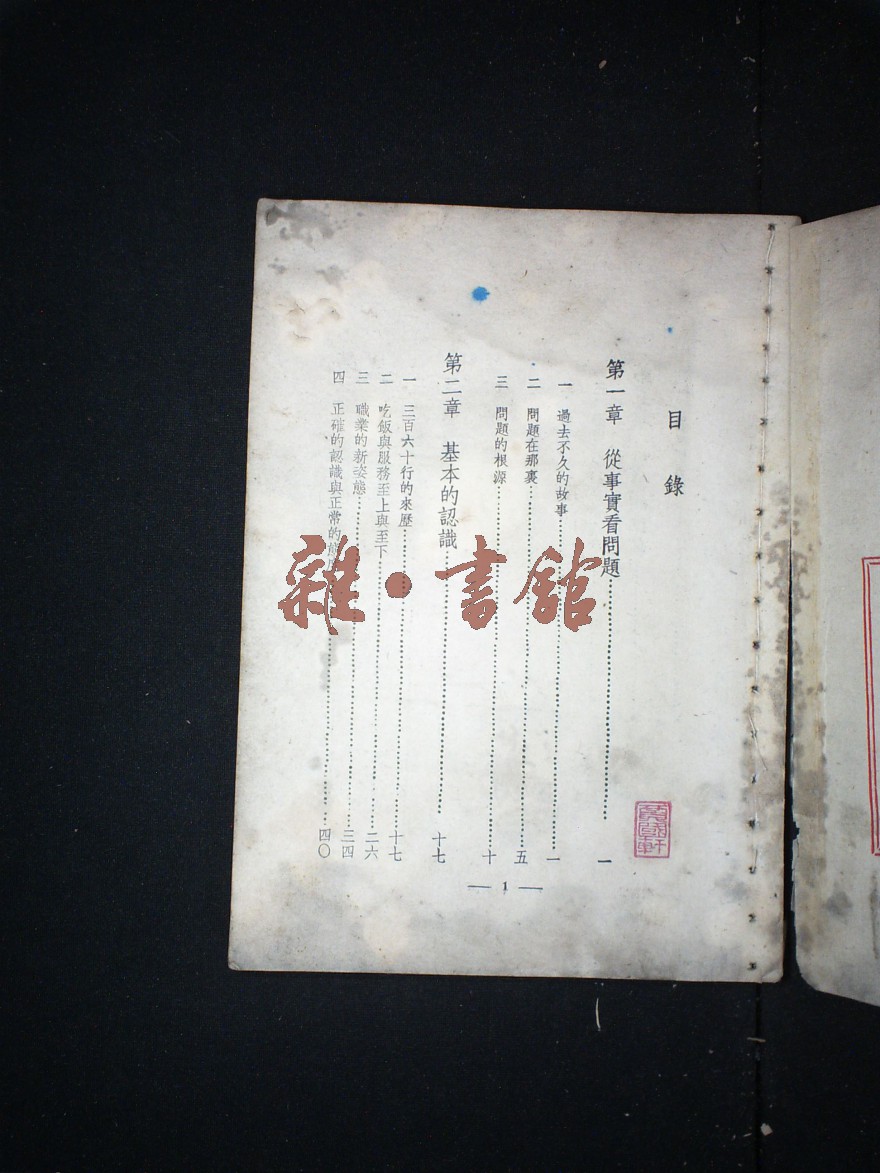 目錄
第一章 從事實看問題 一
一 過去不久的故事 一
二 問題在那裏 五
三 問題的根源 十
第二章 基本的認識 十七
一 三百六十行的來歷 十七
二 吃飯與服務至上與至下 二六
三 職業的新姿態 三四
四 正確的認識與正常的 四〇
— 1 —
雜·書館